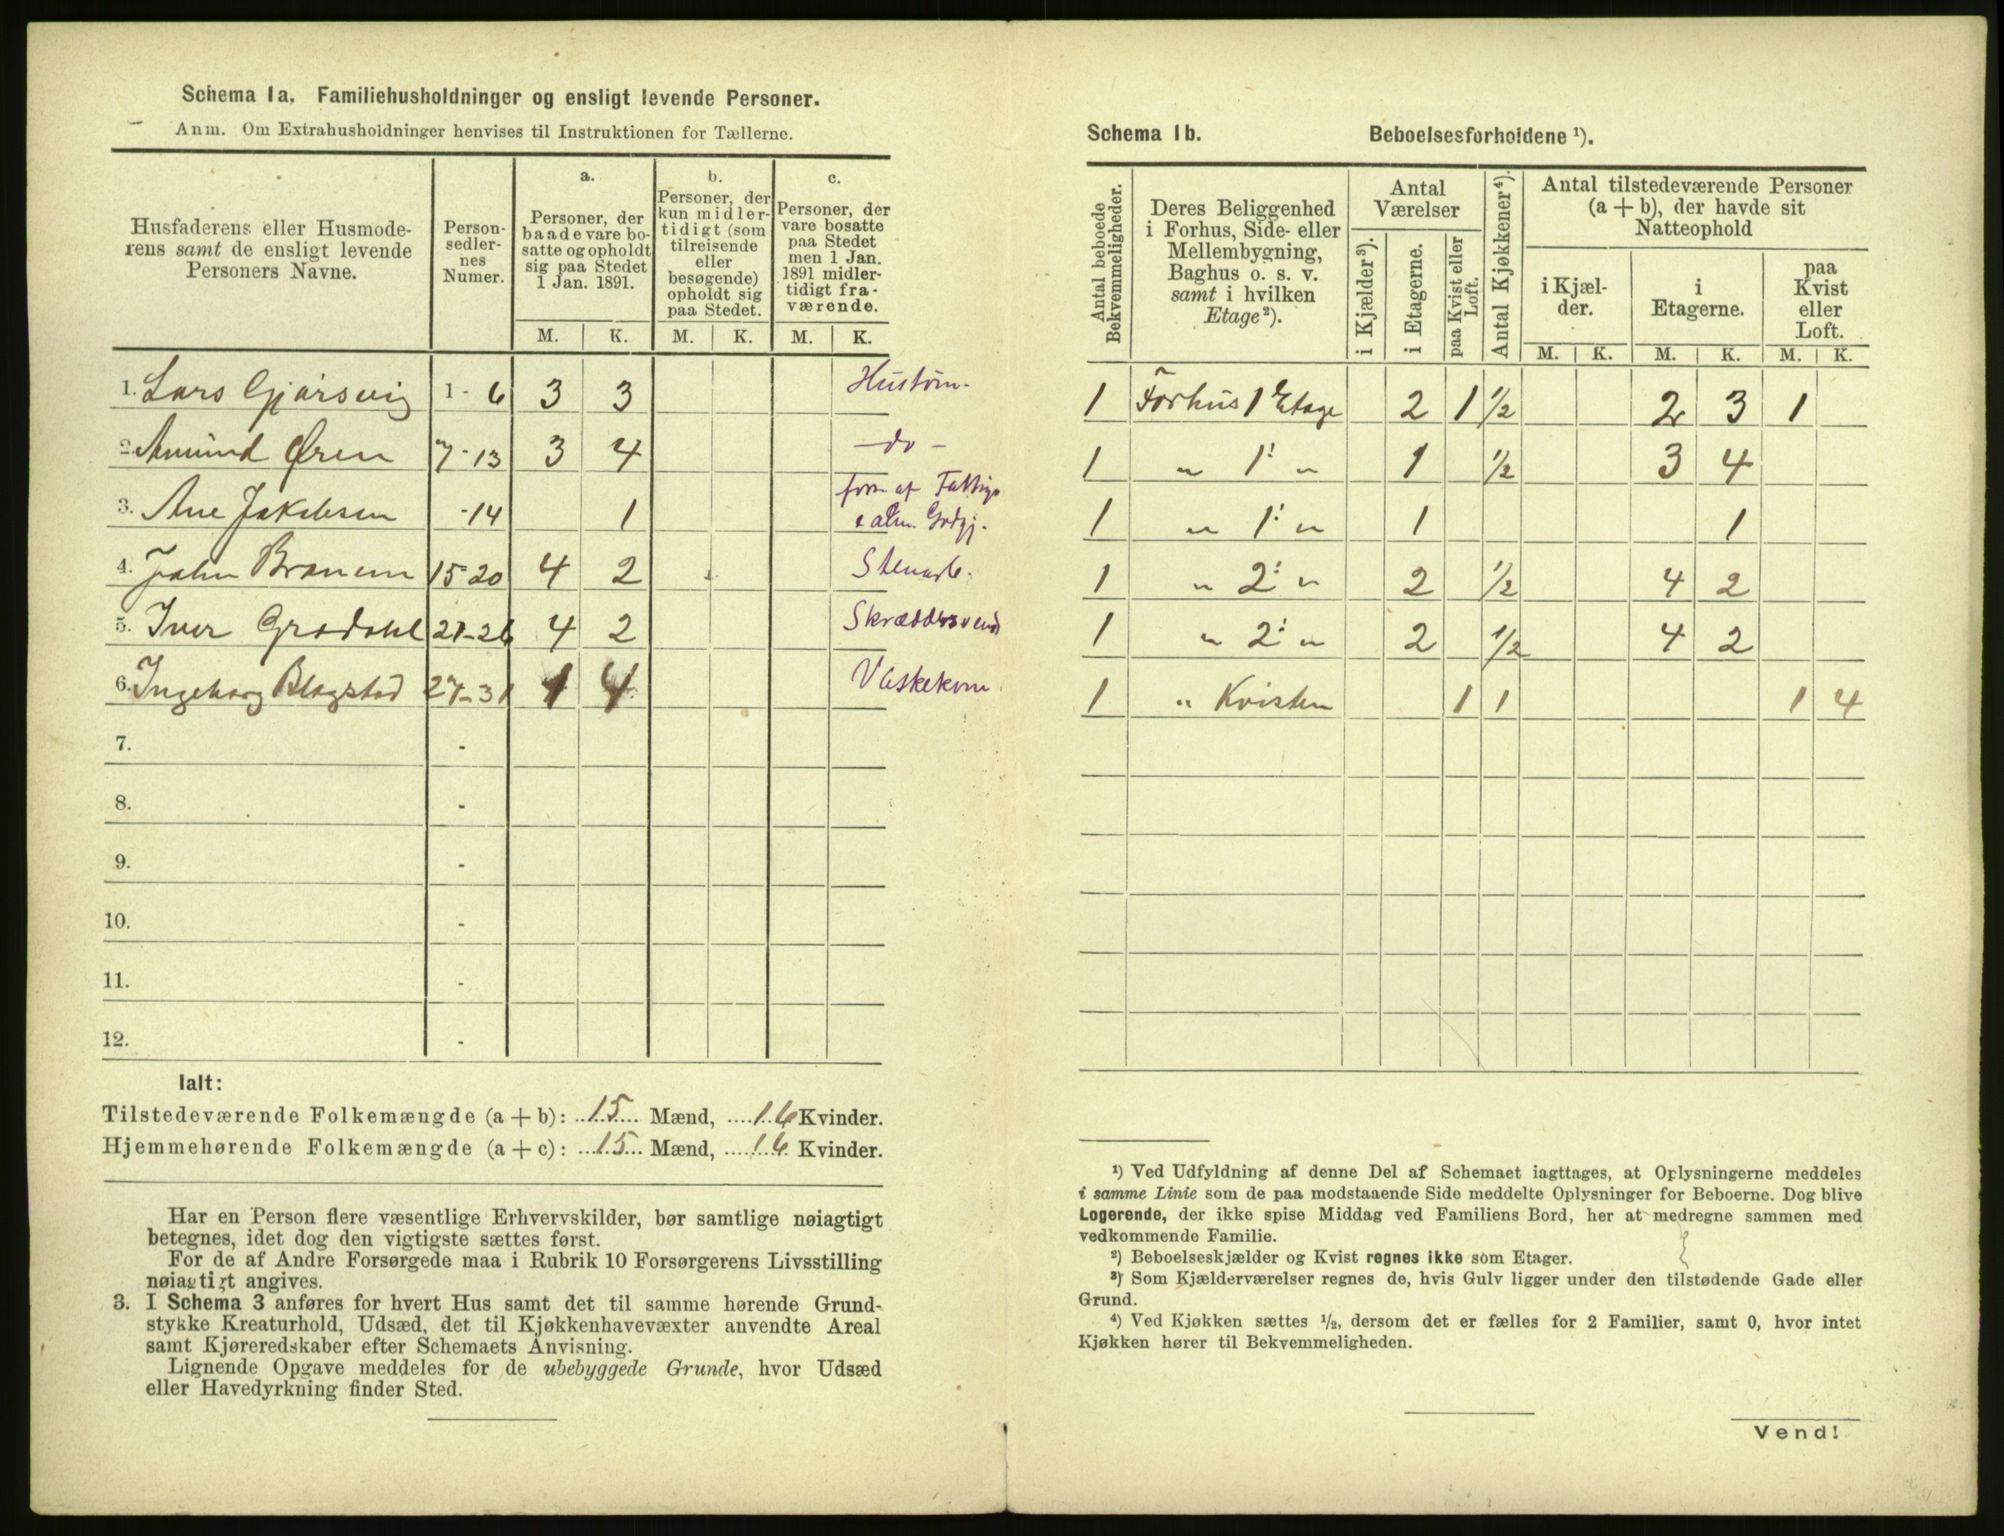 Schema 1a. Familiehusholdninger og ensligt levende Personer.
Anm. Om Extrahusholdninger henvises til Instruktionen for Tællerne.
Husfaderens eller Husmode-
rens samt de ensligt levende
Personers Navne.
Person-
sedler-
nes
Numer.
a.
Personer, der
baade vare bo-
satte og opholdt
sig paa Stedet
1 Jan. 1891.
b.
Personer, der
kun midler-
tidigt (som
tilreisende
eller
besøgende)
opholdt sig
paa Stedet.
c.
Personer, der
vare bosatte
paa Stedet
men 1 Jan.
1891 midler-
tidigt fra-
værende.
M. K. M. K. M. K.
1. Lars Gjørsvig 1 - 6 3 3 Hustøm.
2. Amund Øren 7-13 3 4 - do -
3. Ane Jakobsen -14 1 fors af Fattigv
4. John Branem 15-20 4 2
5. Iver Grødahl 21-26 4 2 Skræddersvend
6. Ingeborg Blegstad 27-31 1 4 Vaskekone
7. -
8. -
9. -
10. -
11. -
12. -
Ialt:
Tilstedeværende Folkemængde (a + b): 15 Mænd, 16 Kvinder.
Hjemmehørende Folkemængde (a + c): 15 Mænd, 16 Kvinder.
Har en Person flere væsentlige Erhvervskilder, bør samtlige nøiagtigt
betegnes, idet dog den vigtigste sættes først.
For de af Andre Forsørgede maa i Rubrik 10 Forsørgerens Livsstilling
nøiagtigt angives.
3. I Schema 3 anføres for hvert Hus samt det til samme hørende Grund-
stykke Kreaturhold, Udsæd, det til Kjøkkenhavevæxter anvendte Areal
samt Kjøreredskaber efter Schemaets Anvisning.
Lignende Opgave meddeles for de ubebyggede Grunde, hvor Udsæd
eller Havedyrkning finder Sted.
Schema 1b. Beboelsesforholdene ¹).
Antal beboede
Bekvemmeligheder.
Deres Beliggenhed
i Forhus, Side- eller
Mellembygning,
Baghus o. s. v.
samt i hvilken
Etage²).
Antal
Værelser
i Kjælder³).
i Etagerne.
paa Kvist eller
Loft.
Antal Kjøkkener⁴).
Antal tilstedeværende Personer
(a + b), der havde sit
Natteophold
i Kjæl-
der.
i
Etagerne.
paa
Kvist
eller
Loft.
M. K. M. K. M. K.
1 Forhus 1 Etage 2 1 ½ 2 3 1
1 " 1: " 1 ½ 3 4
1 " 1: " 1 1
1 " 2: " 2 ½ 4 2
1 " 2: " 2 ½ 4 2
1 " Kvisten 1 1 1 4
¹) Ved Udfyldning af denne Del af Schemaet iagttages, at Oplysningerne meddeles
i samme Linie som de paa modstaaende Side meddelte Oplysninger for Beboerne. Dog blive
Logerende, der ikke spise Middag ved Familiens Bord, her at medregne sammen med
vedkommende Familie.
²) Beboelseskjælder og Kvist regnes ikke som Etager.
³) Som Kjælderværelser regnes de, hvis Gulv ligger under den tilstødende Gade eller
Grund.
⁴) Ved Kjøkken sættes ½, dersom det er fælles for 2 Familier, samt 0, hvor intet
Kjøkken hører til Bekvemmeligheden.
Vend!